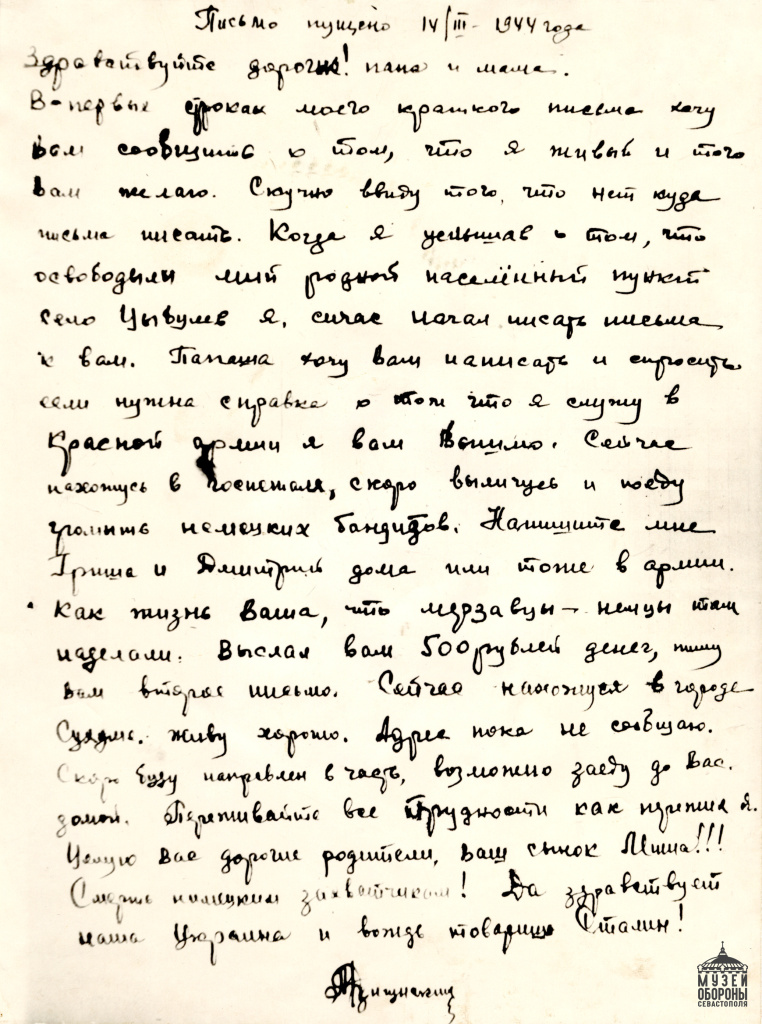 Письмо пущено 14/III - 1944 года
Здравствуйте дорогие! папа и мама.
В-первых строках моего краткого письма хочу
Вам сообщить о том, что я живый и того
Вам желаю. Скучно ввиду того, что нет куда
письма писать. Когда я услышав о том, что
освободили мий родной населённый пункт
село Цыбулев я, сичас начал писать письма
к вам. Папаша хочу Вам написать и спросить
если нужна справка о том что я служу в
Красной армии я вам Вышлю. Сейчас
нахожусь в госпетале, скоро выличусь и поеду
громить немецких бандидов. Напишите мне
Гриша и Дмитрий дома или тоже в армии.
Как жизнь Ваша, что мерзавцы - немцы там
наделали. Выслал вам 500 рублей денег, пишу
вам второе письмо. Сейчас нахожуся в городе
живу хорошо. Адрес пока не сообщаю.
Скоро буду направлен в часть, возможно заеду до Вас.
домой. Переживайте все трудности как пережил я.
Целую Вас дорогие родители, Ваш сынок Миша!!!
Смерть нимецким захватчикам! Да здравствует
наша Украина и вождь товарищ Сталин!
МУЗЕЙ
ОБОРОНЫ
СЕВАСТОПОЛЯ